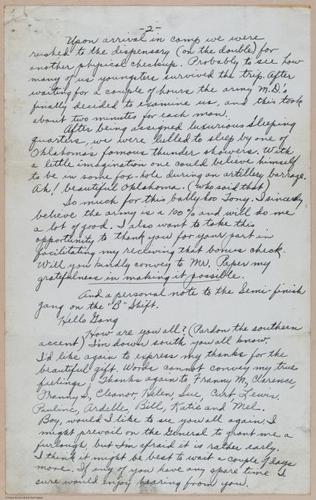 -2-
Upon arrival in camp we were
rushed to the dispensary (on the double) for
another physical checkup. Probably to see how
many of us youngsters survived the trip. After
waiting for a couple of hours the army M.D.'s
finally decided to examine us, and this took
about two minutes for each man.
After being assigned luxurious sleeping
quarters, we were lulled to sleep by one of
Oklahoma's famous thunder showers. With
a little imagination one could believe himself
to be in some fox-hole during an artillery barrage.
Ah! beautiful Oklahoma. (who said that)
So much for this ballyhoo Tony. I sincerely
believe the army is a 100% and will do me
a lot of good. I also want to take this
opportunity to thank you for your part in
facilitating my recieving that bonus check.
Will you kindly convey to Mr. Paper my
gratefulness in making it possible.
And a personal note to the Semi-finish
gang on the "B" Shift.
Hello Gang
How are you all? (Pardon the southern
accent) I'm down south you all know.
I'd like again to express my thanks for the
beautiful gift. Words cannot convey my true
feelings. Thanks again to, Franny M, Clarence,
Franny S, Eleanor, Helen Sue, Curt Lewis,
Pauline, Ardelle, Bill, Katie and Mel.
Boy, would I like to see you all again. I
might prevail on the General to grant me a
furlough, but I'm afraid it is rather early.
I think it might be best to wait a couple of days
more. If any of you have any spare time I
sure would enjoy hearing from you.